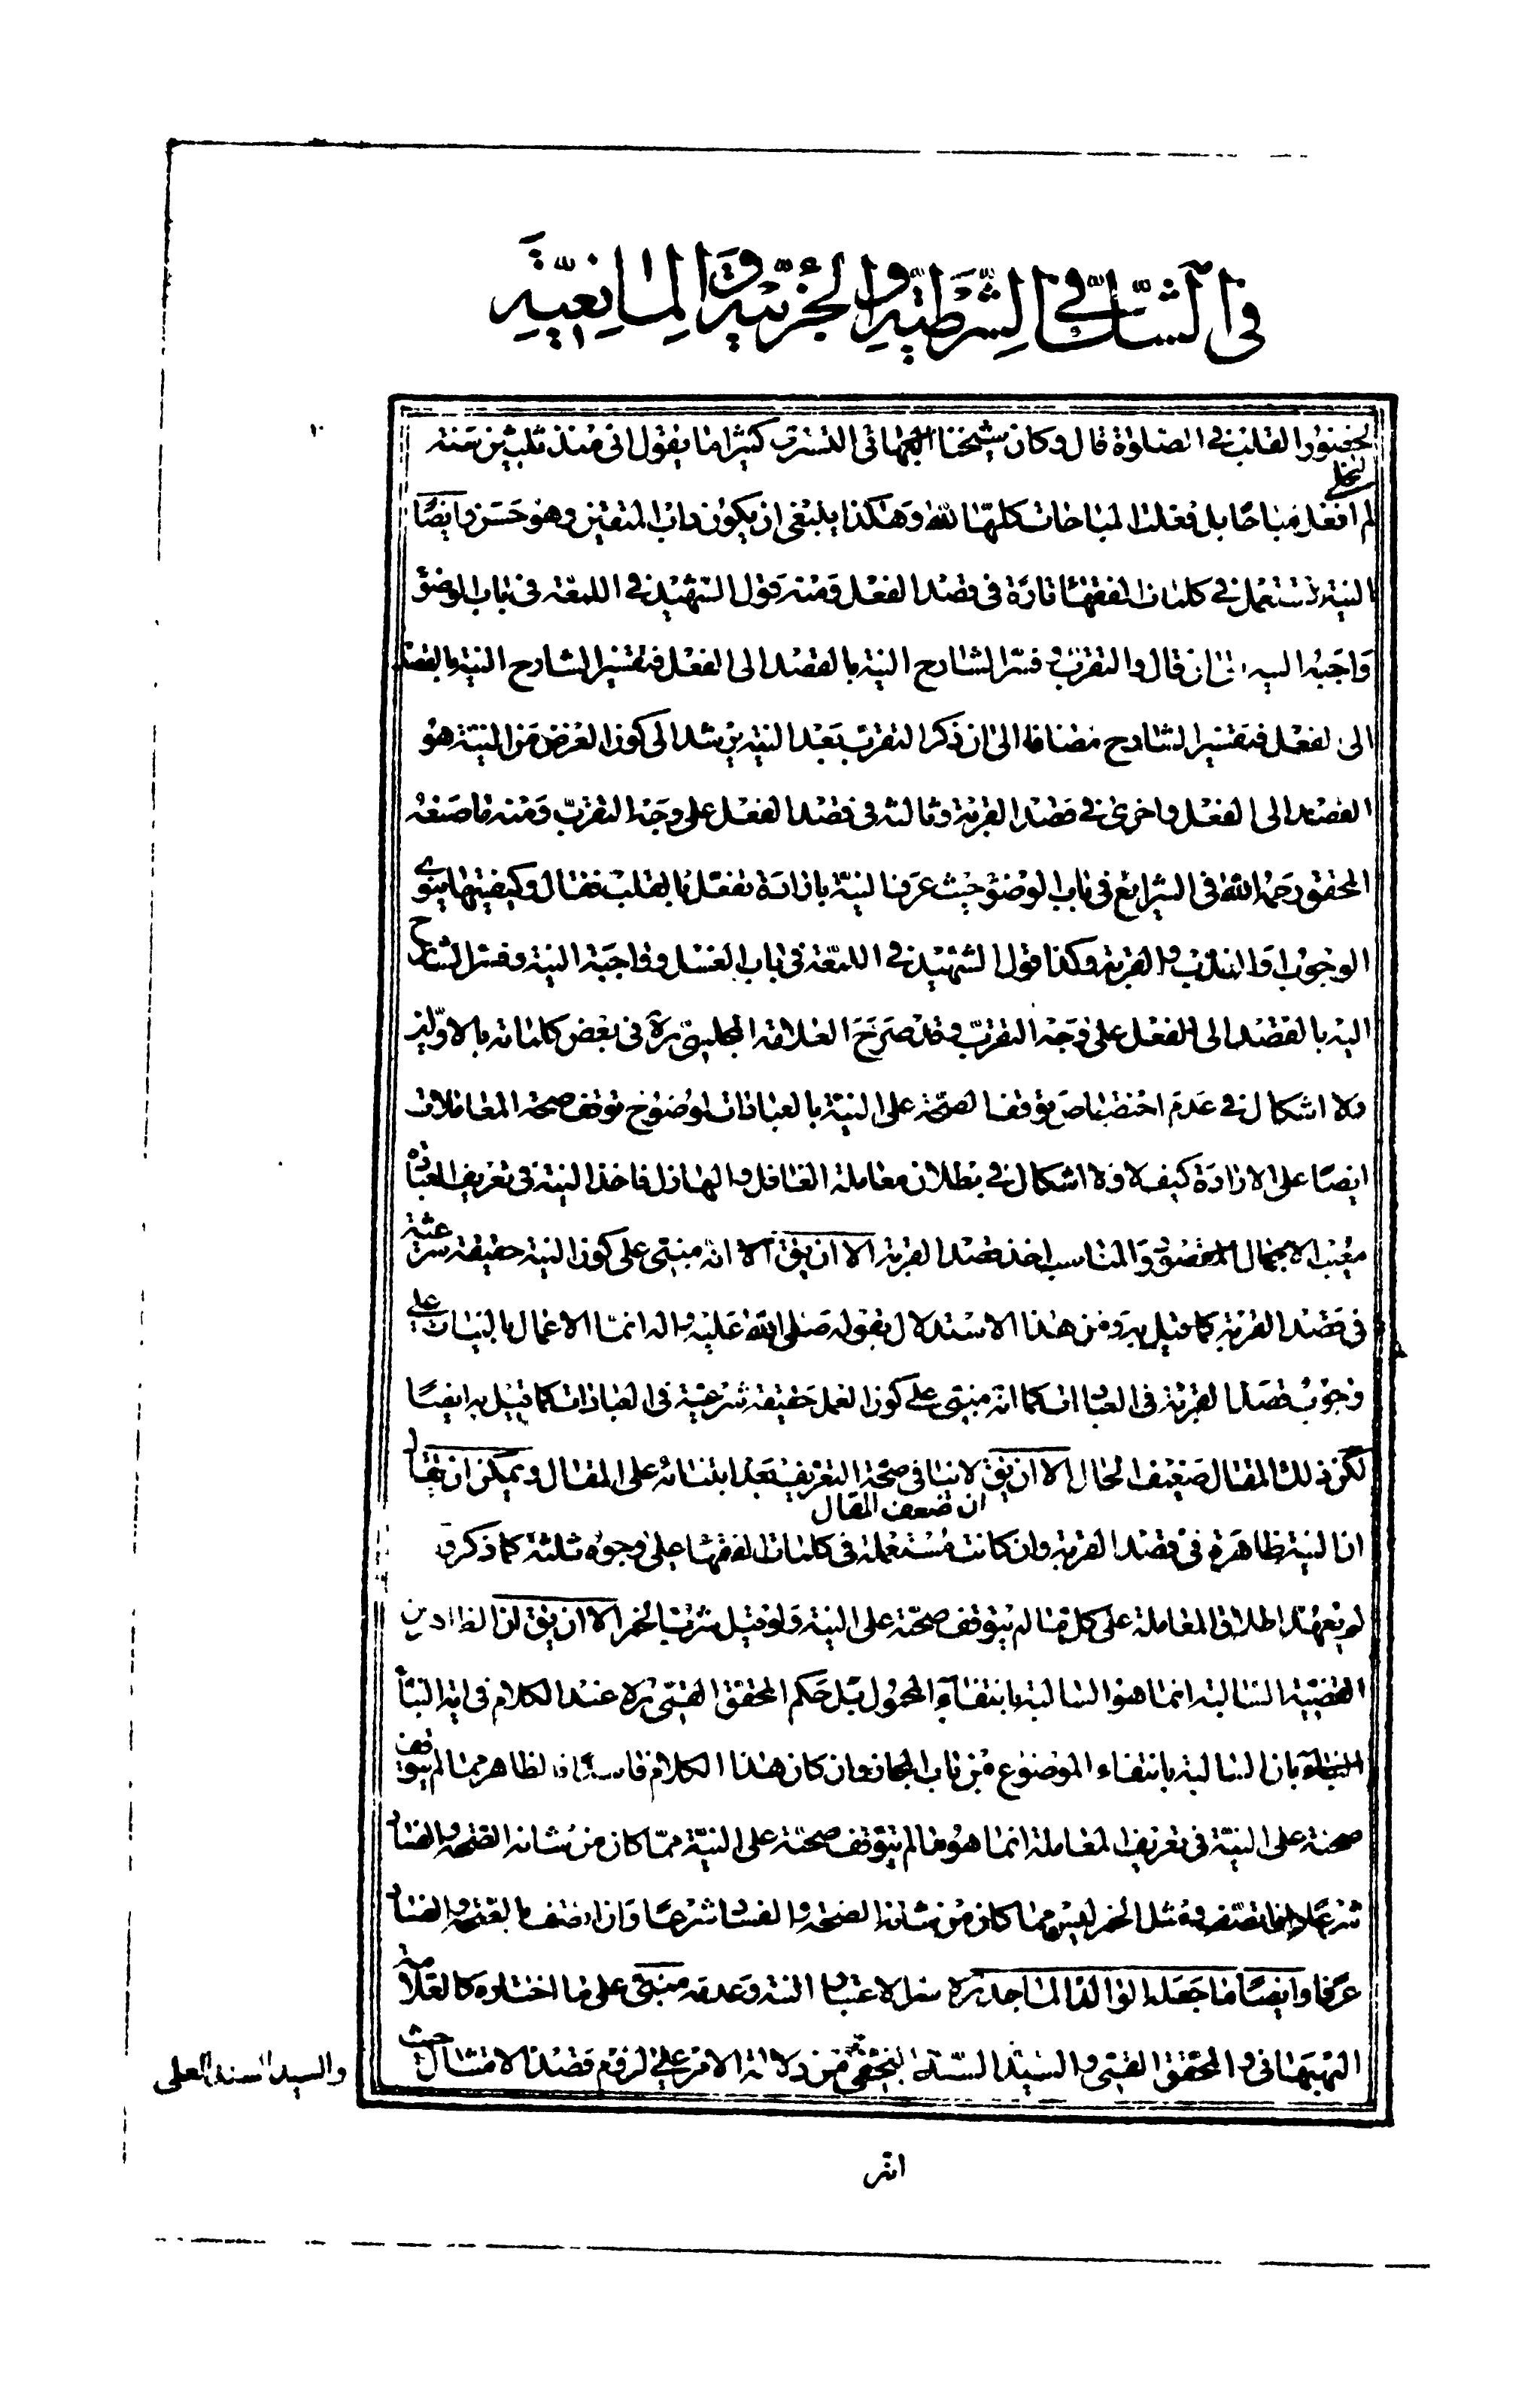 في الشك في الشرطية والجزئية والمانعية
١٠
لحضور القلب في الصلوة قال وكان شيخنا البهائي التستري كثيرا ما يقول اني منذ ثلثين سنة
لم افعل مباحا بل فعلت المباحات كلها لله وهكذا ينبغي ان يكون داب المتقين وهو حسن وايضا
النية تستعمل في كلمات الفقهاء تارة في قصد الفعل ومنه قول الشهيد في اللمعة في باب الوضوء
وواجبه النية قال والتقرب وفسر الشارح النية بالقصد الى الفعل فتفسير الشارح النية بالقصد
الى الفعل فتفسير الشارح مضافا الى ان ذكر التقرب بعد النية يرشد الى كون الغرض من النية هو
القصد الى الفعل واخرى في قصد القربة وثالثه في قصد الفعل على وجه التقرب ومنه ما صنعه
المحقق رحمه الله في الشرايع في باب الوضوء حيث عرف النية بارادة تفعل بالقلب فقال وكيفيتها ينوي
الوجوب او الندب والقربة وكذا قول الشهيد في اللمعة في باب الغسل وواجبه النية وفسر الشارح
النية بالقصد الى الفعل على وجه التقرب وقد صرح العلامة المجلسي ره في بعض كلماته بالاولين
ولا اشكال في عدم اختصاص توقف الصحة على النية بالعبادات لوضوح توقف صحة المعاملات
ايضا على الارادة كيف لا ولا اشكال في بطلان معاملة الغافل والهازل فاخذ النية في تعريف العبادة
معيب الاجمال المقصود والمناسب اخذ قصد القربة الا ان يق الا انه مبني على كون النية حقيقة شرعية
في قصد القربة كما قيل به ومن هذا الاستدلال بقوله صلى الله عليه واله انما الاعمال بالنيات على
وجوب قصد القربة في العبادات كما انه مبني على كون العمل حقيقة شرعية في العبادات كما قيل به ايضا
لكن ذلك المقال ضعيف الحال الا ان يق لا ينافي صحة التعريف بعد ابتنائه على المقال ويمكن ان يقال
ان ضعف المقال
ان النية ظاهرة في قصد القربة وان كانت مستعملة في كلمات الفقهاء على وجوه ثلثة كما ذكر و
لم يعهد اطلاق المعاملة على كل ما لم يتوقف صحته على النية ولو قيل شرب الخمر الا ان يق ان الظاهر من
القضية السالبة انما هو السالبة بانتفاء المحمول بل حكم المحقق القمي ره عند الكلام في اية النبأ
بان السالبة بانتفاء الموضوع من باب المجاز وان كان هذا الكلام فاسدا فالظاهر مما لم يتوقف
صحته على النية في تعريف المعاملة انما هو ما لم يتوقف صحته على النية مما كان من شانه الصحة والفساد
شرعا ومثل الخمر ليس مما كان من شانه الصحة والفساد شرعا وان اتصف بالصحة والفساد
عرفا وايضا ما جعله الوالد الماجد ره اعتبار النية وعدمه مبني على ما اختاره كالعلامة
البهبهاني والمحقق القمي والسيد السند النجفي من دلالة الامر على لزوم قصد الامتثال حيث
والسيد السند العلي
انه